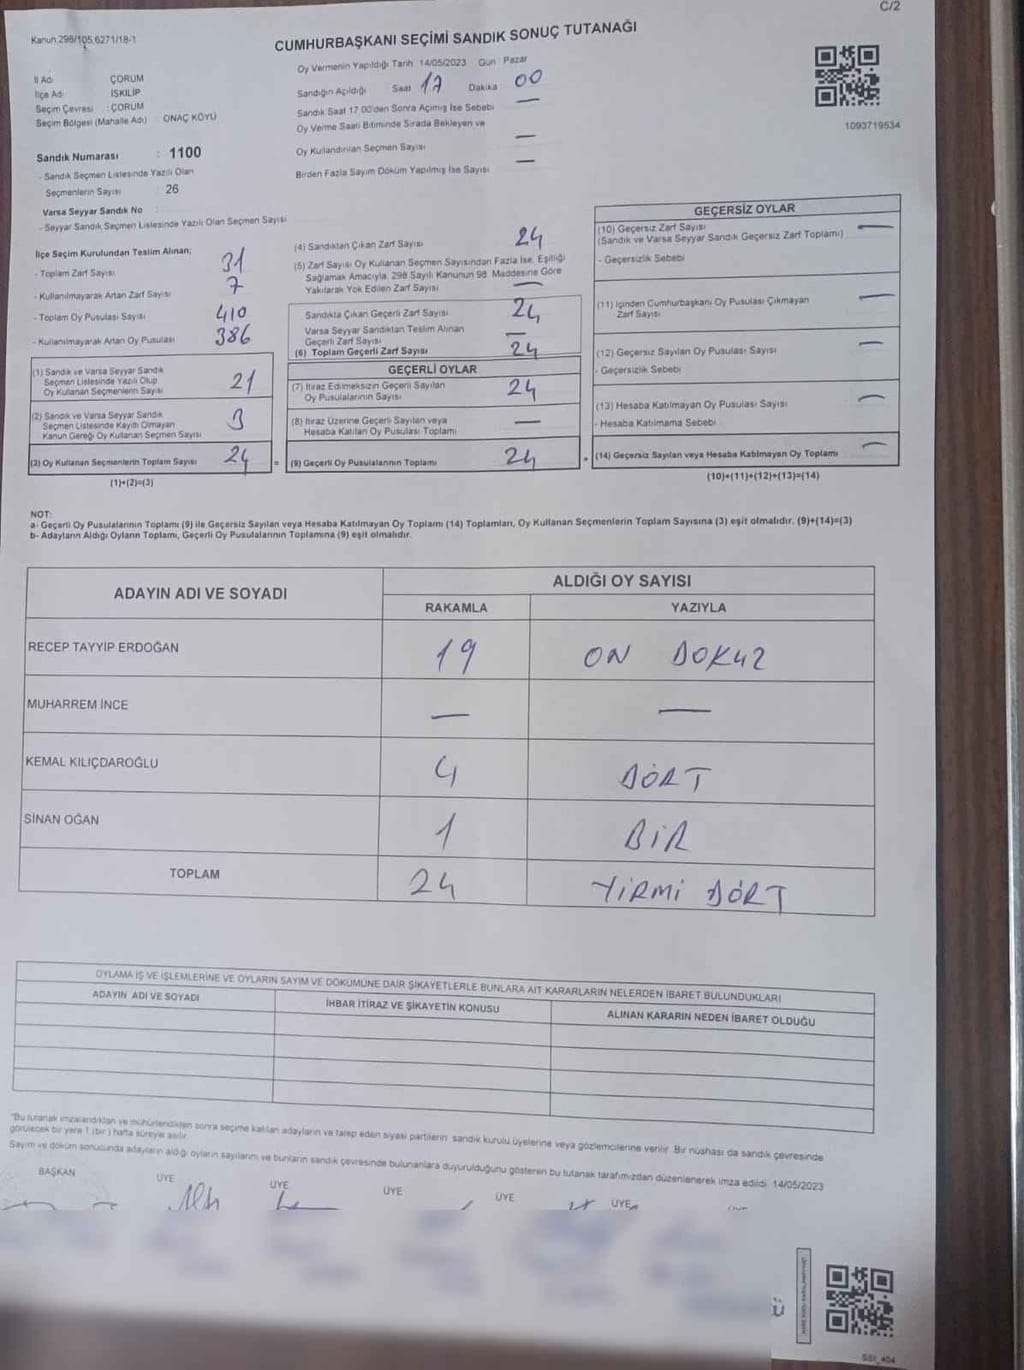 C/2
Kanun 298/105,6271/18-1
CUMHURBAŞKANI SEÇİMİ SANDIK SONUÇ TUTANAĞI
İl Adı ÇORUM
İlçe Adı İSKİLİP
Seçim Çevresi : ÇORUM
Seçim Bölgesi (Mahalle Adı) ONAÇ KÖYÜ
Sandık Numarası : 1100
- Sandık Seçmen Listesinde Yazılı Olan
Seçmenlerin Sayısı 26
Varsa Seyyar Sandık No
- Seyyar Sandık Seçmen Listesinde Yazılı Olan Seçmen Sayısı
Oy Vermenin Yapıldığı Tarih 14/05/2023 Gün Pazar
Sandığın Açıldığı Saat 17 Dakika 00
Sandık Saat 17 00'den Sonra Açılmış İse Sebebi —
Oy Verme Saati Bitiminde Sırada Bekleyen ve
Oy Kullandırılan Seçmen Sayısı —
Birden Fazla Sayım Döküm Yapılmış İse Sayısı —
1093719534
İlçe Seçim Kurulundan Teslim Alınan;
- Toplam Zarf Sayısı 31
- Kullanılmayarak Artan Zarf Sayısı 7
- Toplam Oy Pusulası Sayısı 410
- Kullanılmayarak Artan Oy Pusulası 386
(1) Sandık ve Varsa Seyyar Sandık
Seçmen Listesinde Yazılı Olup
Oy Kullanan Seçmenlerin Sayısı 21
(2) Sandık ve Varsa Seyyar Sandık
Seçmen Listesinde Kayıtlı Olmayan
Kanun Gereği Oy Kullanan Seçmen Sayısı 3
(3) Oy Kullanan Seçmenlerin Toplam Sayısı 24 =
(1)+(2)=(3)
(4) Sandıktan Çıkan Zarf Sayısı 24
(5) Zarf Sayısı Oy Kullanan Seçmen Sayısından Fazla İse, Eşitliği
Sağlamak Amacıyla, 298 Sayılı Kanunun 98. Maddesine Göre
Yakılarak Yok Edilen Zarf Sayısı —
Sandıkta Çıkan Geçerli Zarf Sayısı 24
Varsa Seyyar Sandıktan Teslim Alınan
Geçerli Zarf Sayısı —
(6) Toplam Geçerli Zarf Sayısı 24
GEÇERLİ OYLAR
(7) İtiraz Edilmeksizin Geçerli Sayılan
Oy Pusulalarının Sayısı 24
(8) İtiraz Üzerine Geçerli Sayılan veya
Hesaba Katılan Oy Pusulası Toplamı —
(9) Geçerli Oy Pusulalarının Toplamı 24 +
GEÇERSİZ OYLAR
(10) Geçersiz Zarf Sayısı —
(Sandık ve Varsa Seyyar Sandık Geçersiz Zarf Toplamı)
- Geçersizlik Sebebi
(11) İçinden Cumhurbaşkanı Oy Pusulası Çıkmayan —
Zarf Sayısı
(12) Geçersiz Sayılan Oy Pusulası Sayısı —
- Geçersizlik Sebebi
(13) Hesaba Katılmayan Oy Pusulası Sayısı —
- Hesaba Katılmama Sebebi
(14) Geçersiz Sayılan veya Hesaba Katılmayan Oy Toplamı —
(10)+(11)+(12)+(13)=(14)
NOT:
a- Geçerli Oy Pusulalarının Toplamı (9) ile Geçersiz Sayılan veya Hesaba Katılmayan Oy Toplamı (14) Toplamları, Oy Kullanan Seçmenlerin Toplam Sayısına (3) eşit olmalıdır. (9)+(14)=(3)
b- Adayların Aldığı Oyların Toplamı, Geçerli Oy Pusulalarının Toplamına (9) eşit olmalıdır.
ADAYIN ADI VE SOYADI
ALDIĞI OY SAYISI
RAKAMLA YAZIYLA
RECEP TAYYİP ERDOĞAN 19 ON DOKUZ
MUHARREM İNCE — —
KEMAL KILIÇDAROĞLU 4 DÖRT
SİNAN OĞAN 1 BİR
TOPLAM 24 YİRMİ DÖRT
OYLAMA İŞ VE İŞLEMLERİNE VE OYLARIN SAYIM VE DÖKÜMÜNE DAİR ŞİKAYETLERLE BUNLARA AİT KARARLARIN NELERDEN İBARET BULUNDUKLARI
ADAYIN ADI VE SOYADI İHBAR İTİRAZ VE ŞİKAYETİN KONUSU ALINAN KARARIN NEDEN İBARET OLDUĞU
"Bu tutanak imzalandıktan ve mühürlendikten sonra seçime katılan adayların ve talep eden siyasi partilerin sandık kurulu üyelerine veya gözlemcilerine verilir. Bir nüshası da sandık çevresinde
görülecek bir yere 1 (bir) hafta süreyle asılır.
Sayım ve döküm sonucunda adayların aldığı oyların sayılarını ve bunların sandık çevresinde bulunanlara duyurulduğunu gösteren bu tutanak tarafımızdan düzenlenerek imza edildi 14/05/2023
BAŞKAN ÜYE ÜYE ÜYE ÜYE ÜYE